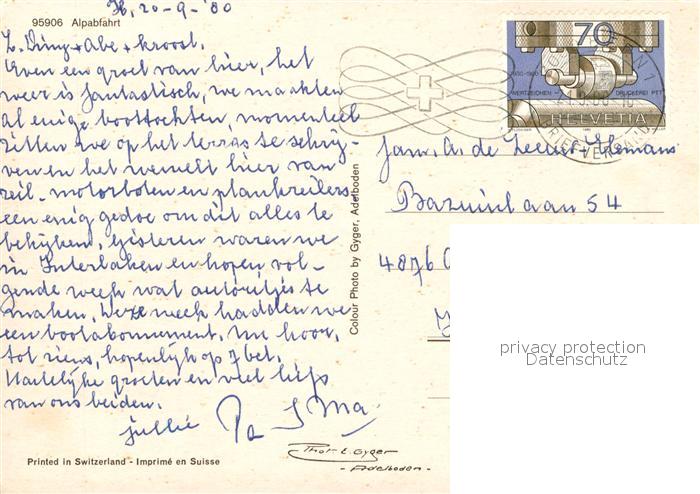 95906 Alpabfahrt
20-9-'80
L. Diny + Abe + kroost.
Even een groet van hier, het
weer is fantastisch, we maakten
al enige boottochten, momenteel
zitten we op het terras te schrij-
ven en het wemelt hier van
zeil-motorboten en plankzeilers
een enig gedoe om dit alles te
bekijken, gisteren waren we
in Interlaken en hopen vol-
gende week wat autoritjes te
maken. Deze week hadden we
een bootabonnement. Nu hoor,
tot ziens, hopenlijk op 7 bet.
Hartelijke groeten en veel liefs
van ons beiden.
jullie Pa + Ma
Printed in Switzerland - Imprimé en Suisse
Colour Photo by Gyger, Adelboden
Phot. E. Gyger
- Adelboden -
70
1930-1980
WERTZEICHEN
DRUCKEREI PTT
HELVETIA
BRIEFVERSAND
fam. A. de Leeuw-Hemans
laan 54
4876
privacy protection
Datenschutz